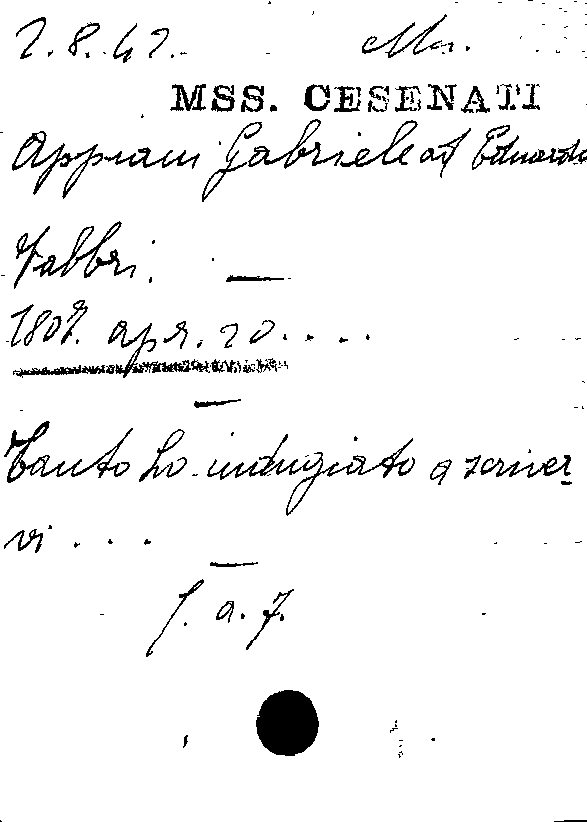 2.8.42. Mo.
MSS. CESENATI
Appiani Gabriele ad Eduardo
Fabbri. —
1807. apr. 20. . . .
—
Tanto ho indugiato a scriver-
vi . . .
—
f. a. 7.